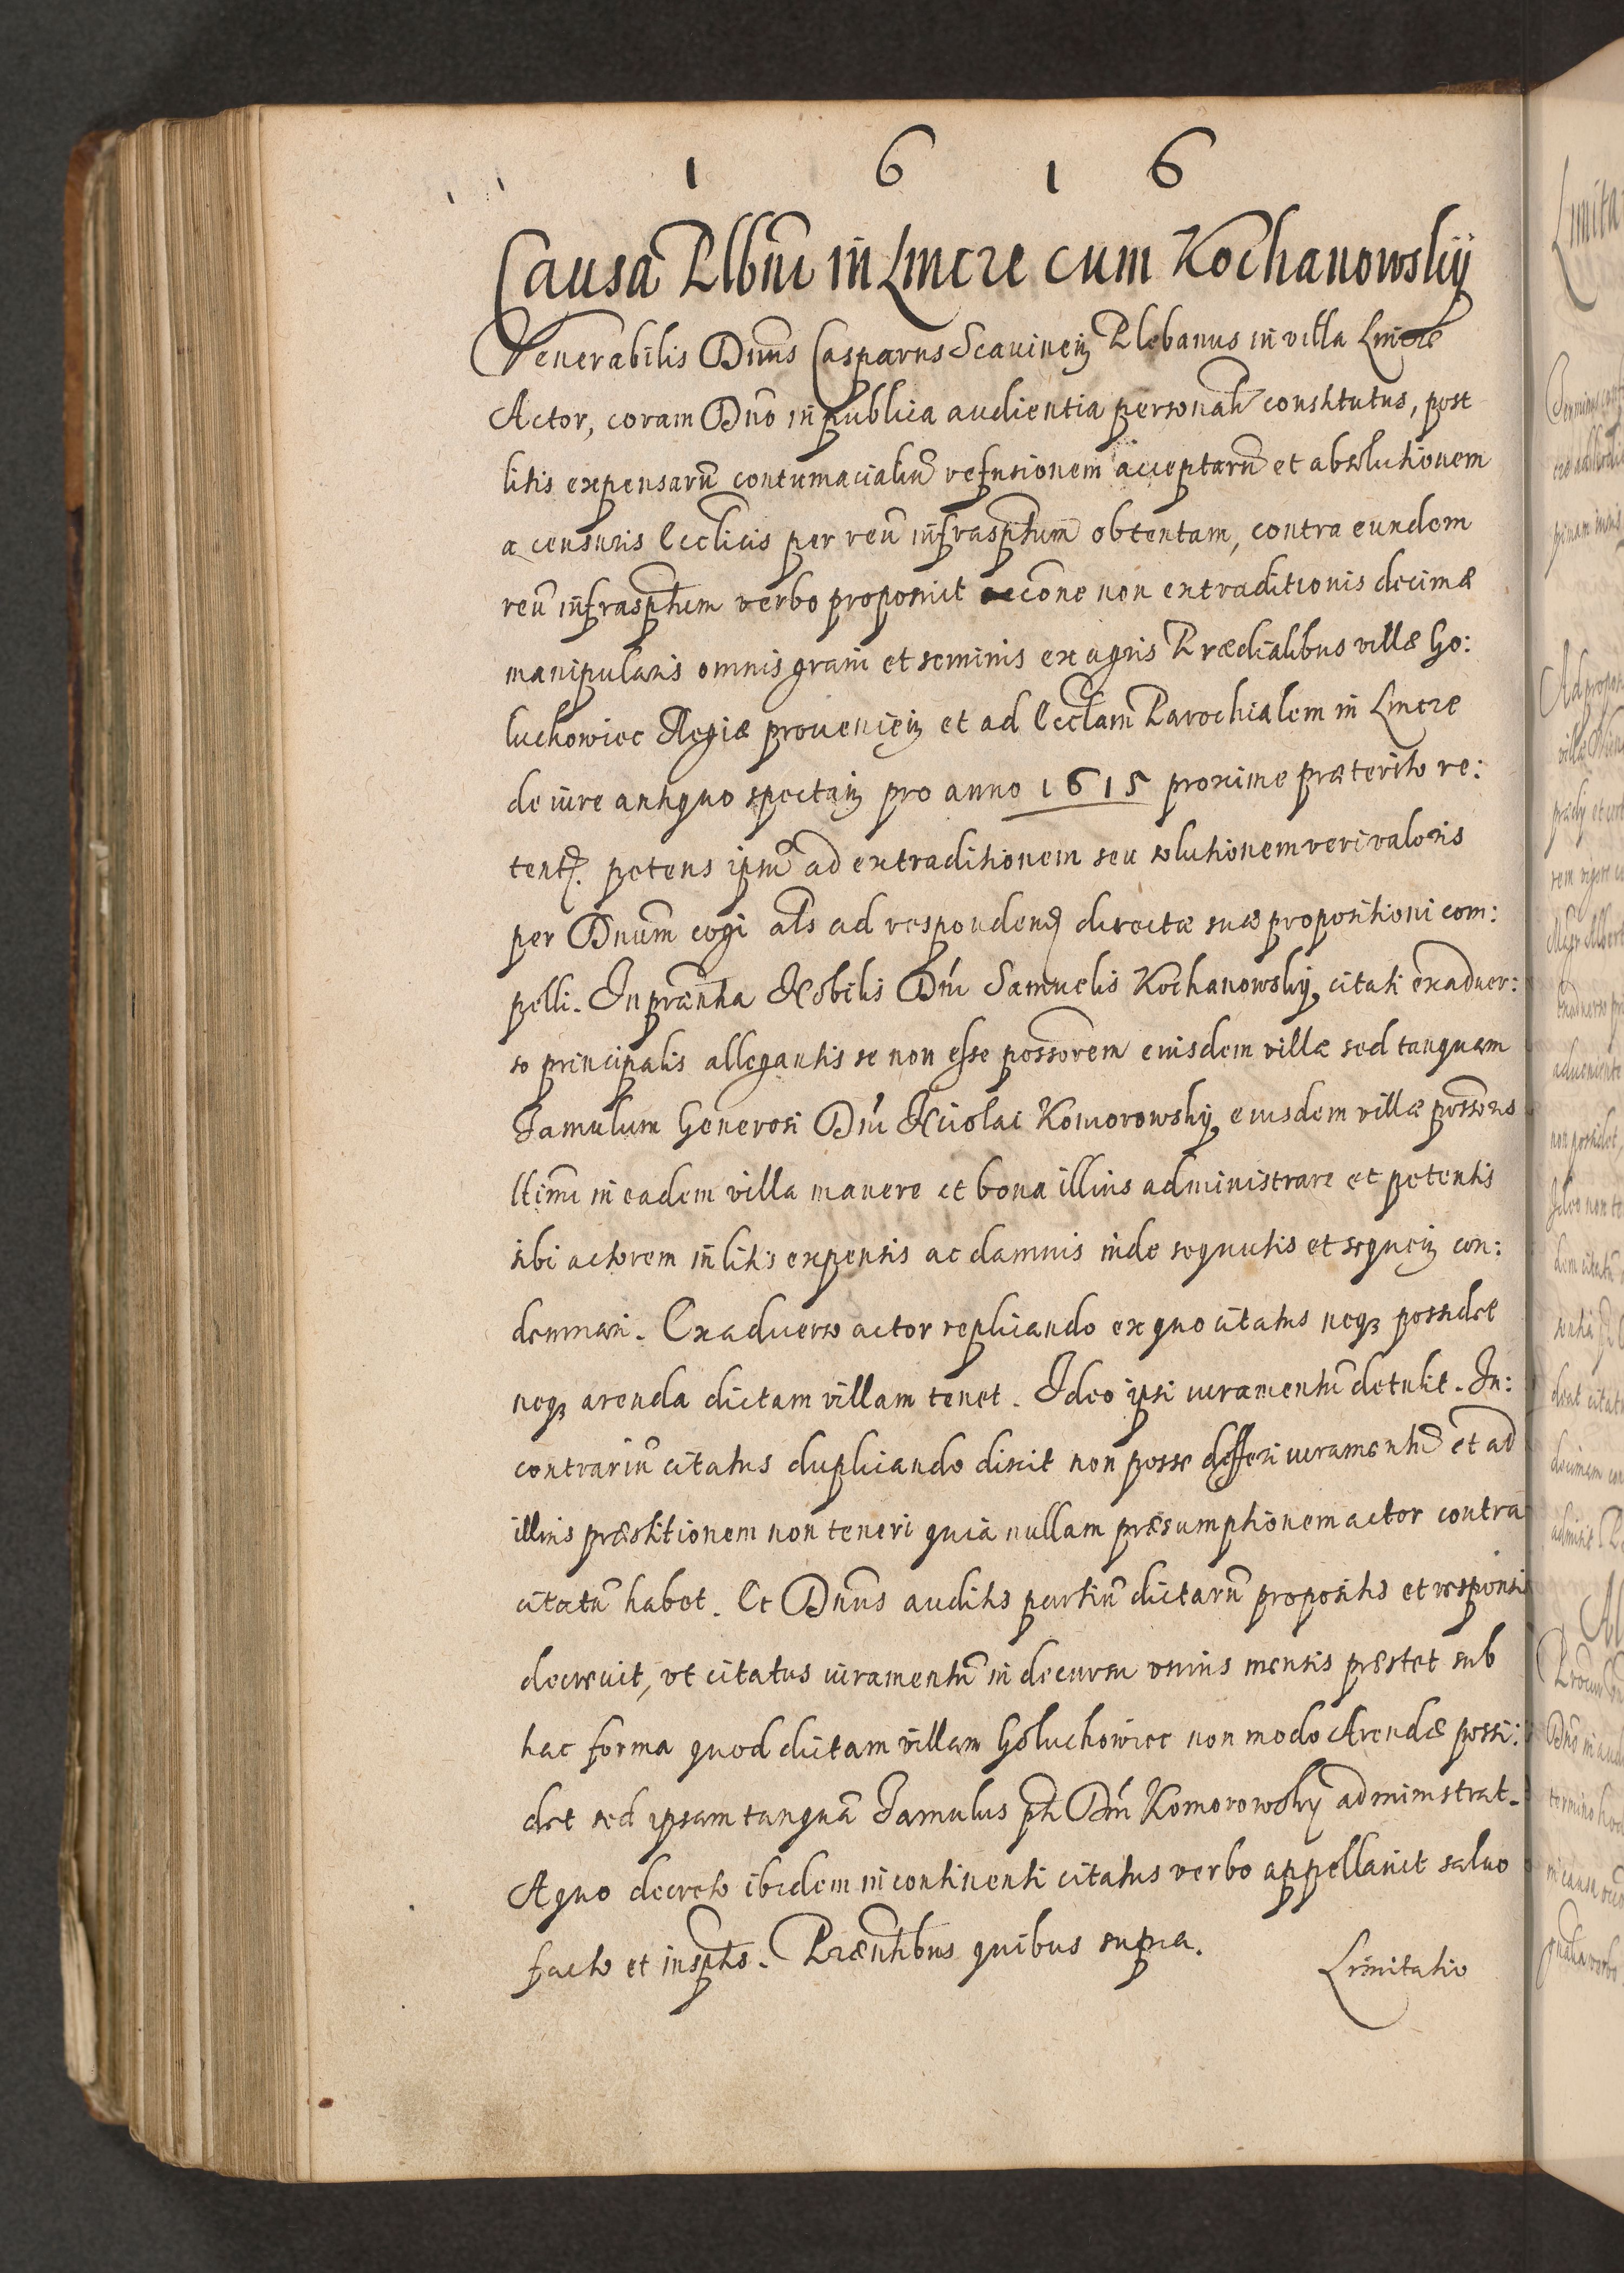 1 6 1 6
Causa Plbni in Imcre cum Kochanowskij
Venerabilis Dnus Casparus Plebanus in villa
Actor, coram Dno in publica audientia personalr constitutus, post
litis expensarũ contumacialiũ refusionem acceptarũ et absolutionem
a censuris Ecclicis per reũ infrasptum obtentam, contra eundem
reũ infrasptum verbo proposuit occone non extraditionis decimæ
manipularis omnis grani et seminis ex agris Prædialibus villæ Go:
luchowiec Regiæ proveniein et ad Ecclam Parochialem in Imcre
de iure antiquo spectain pro anno 1615 proxime præterito re:
tent. petens ipsũ ad extraditionem seu solutionem veri valoris
per Dnum cogi als ad respondend directæ suæ propositioni com:
pelli. In præntia Nobilis Dni Samuelis Kochanowskij, citati exadver:
so principalis allegantis se non esse possorem eiusdem villæ sed tanquam
Famulum Generosi Dni Nicolai Komorowskij, eiusdem villæ possoris
ltimi in eadem villa manere et bona illius administrare et petentis
sibi actorem in litis expensis ac damnis inde sequutis et sequein con:
demnari. Exadverso actor replicando ex quo citatus neqз possidet
neqз arenda dictam villam tenet. Ideo ipsi iuramentũ detulit. In:
contrariũ citatus duplicando dixit non posse defferi iuramentũ et ad
illius præstitionem non teneri quia nullam præsumptionem actor contra
citatũ habet. Et Dnus auditis partiũ dictarũ propositis et responsis
decrevit, vt citatus iuramentũ in decursu vnius mensis præstet sub
hac forma quod dictam villam Goluchowiec non modo Arendæ possi:
det sed ipsam tanquã Famulus pti Dni Komorowskij administrat.
A quo decreto ibidem incontinenti citatus verbo appellavit salvo
facto et inscptis. Præntibus quibus supra.
Limitatio